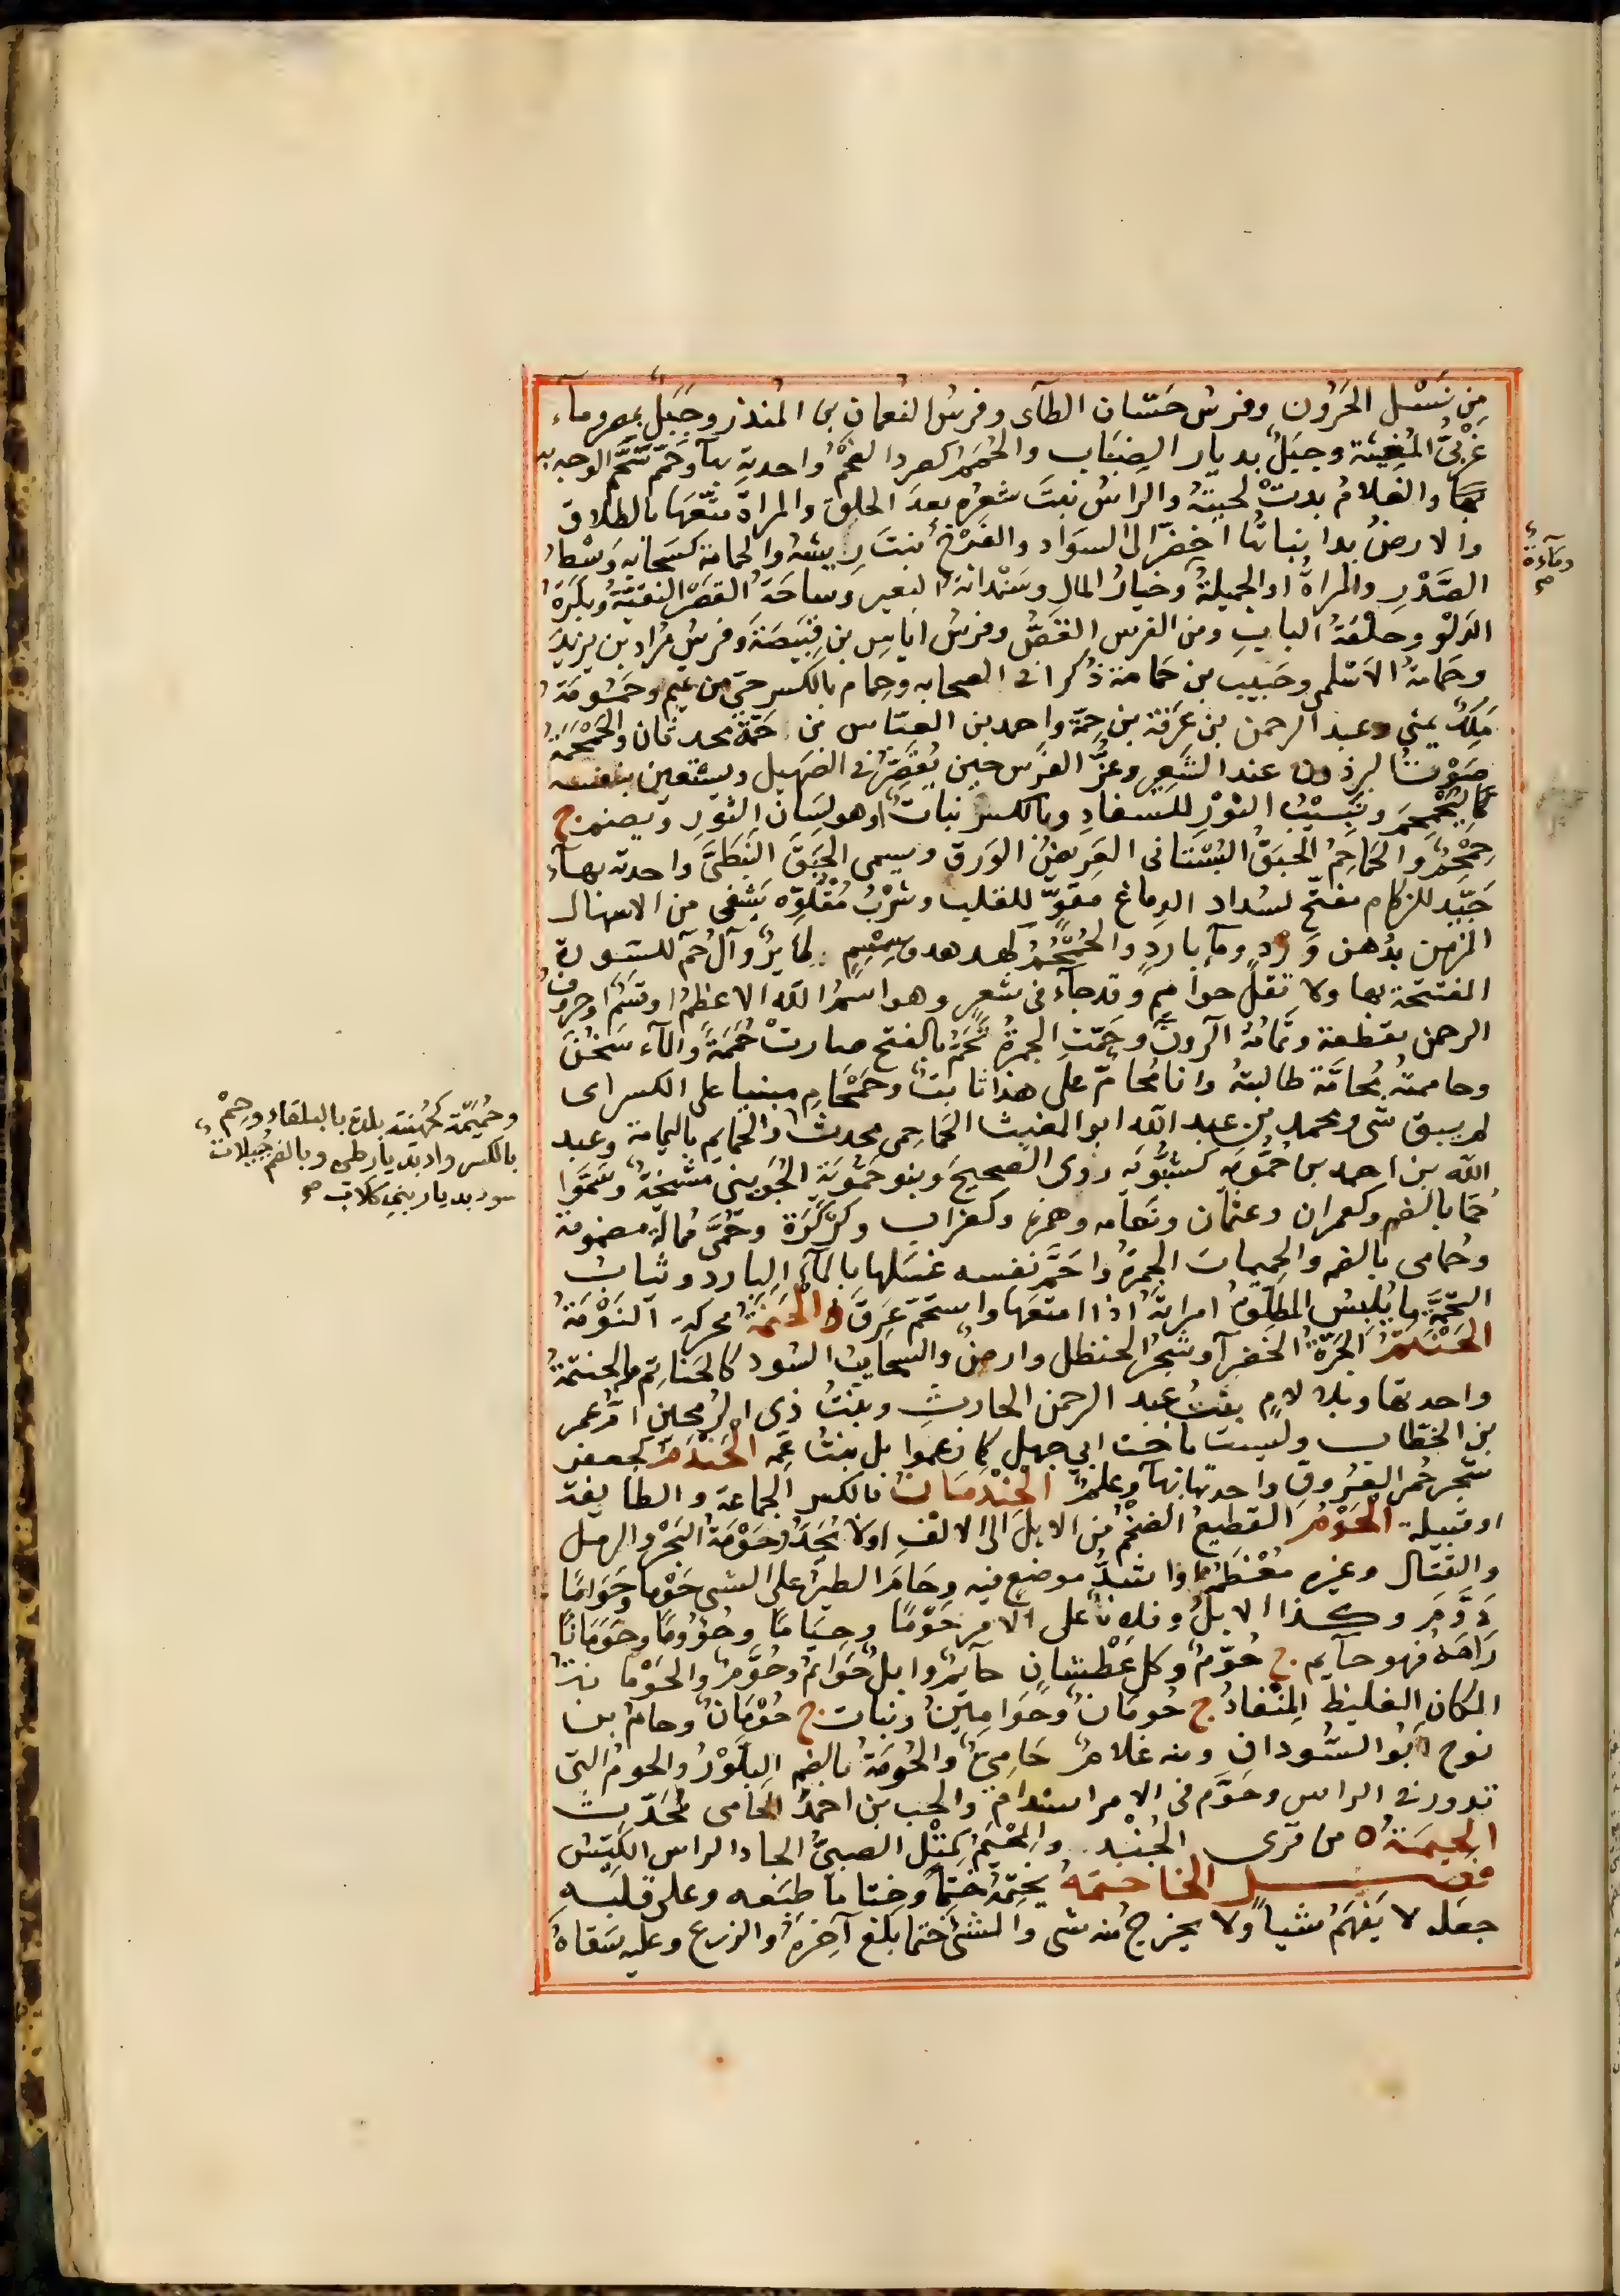 مِن نَسْل الحَرُون وفرس حَسّان الطآى وفرسُ النعمان بن المنذر وجَبَلٌ بمصر وماء
غَرْبىَّ المُغِيثَة وجبَلٌ بديار الضِبَاب والحُمَمُ كصرد الفحْمُ واحدته بهآ وحَمَّمَ سَخَّمَ الوجه به
بها والغلامُ بدتْ لحيتهُ والراسُ نبتَ شعرُه بعدَ الحلق والمراةَ متّعَها بالطلاق
والارضُ بدا نباتُها اخضرَ الى السوَاد والفَرْخُ نبتَ ريشه والحمامة كسحابه وَسْطُ
الصَّدْر والمراةُ او الجميلةُ وخيارُ المال وسَعْدانة البعير وساحَةُ القصْر النقيّة وبكَرَةُ
الدلْو وحلْقةُ الباب ومن الفرس القَصُّ وفرسُ اياس بن قبيصَةَ وفرسُ قراد بن يزيد
وحَمامة الاسْلمى وحبيب بن حَمامة ذُكرا فى الصحابه وحِمام بالكسر حىّ من تميم وحَمُومَةُ
مَلِكٌ يمنى وعبد الرحمن بن عَرَفة بن حمة واحمد بن العبّاس بن حَمَّةَ محدثان والحَمْحَمَةُ
صَوْتُ البرذون عند الشعير وعَرُّ الفرَس حين يُقصّر فى الصَهيل ويستعين بنفسه
كالتحَمحُمِ ونَبيبُ الثوْر للسفادِ وبالكسر نباتٌ او هو لِسَان الثور ويضم ج
حِمْحِمٌ والحَماحِمُ الحبَقُ البُسْتانى العَريضُ الوَرق ويسمى الحَبَقَ النبَطىَّ واحدته بهآء
جَيّد للزكام مفتّح لسُداد الدماغ مقوٍّ للقلب وشُرْبُ مَقْلُوّه يشفى من الاسهال
المزمن بدُهن وَرْدٍ ومآ باردٍ والحُمْحُمُ كهدهد وسِمْسِمٍ طايرٌ وآل حم للسّورة
المفتتحة بها ولا تقل حواميم وقد جاء فى شعر وهو اسمُ الله الاعظمُ او قسَمٌ او حروفُ
الرحمن مقطعة وتمامُهُ الٓر ونٓ وحَمّتِ الجمرةُ تَحَمُّ بالفتح صارتْ حُمَمَةً والمآء سَخُنَ
وحاممته مُحامَّة طالبتهُ وانا مُحامّ على هذا ثابتٌ وحَمْحَامِ مبنيا على الكسر اى
لم يبق شى ومحمد بن عبد الله ابو المغيث الحَماحِمى محدثٌ والحمايم باليمامة وعبد
الله بن احمد بن حَمُّويَه كشبُّويَه روى الصحيحَ وبنو حَمُّويَة الجُوَينى مشْيَخةٌ وسَمَّوا
حُمًّا بالضم وكعمران وعثمان ونعامه وهمزه وكغراب وكرْكرَة وحُمَّى ممالة مضمومة
وحُمامى بالضم والحميمات الجمرة واحَمَّ نفسه غسَلها بالمآء البارد وثيابُ
التحِمَّة ما يُلبسُ المطلّقُ امراتهُ اذا امتعَها واستحَمَّ عَرِقَ الْحنَمَةُ محركة النَوْمَةُ
الحَنْتَمُ الجرّةُ الخَضرآ وشجَرُ الحنظل وارضٌ والسحايبُ السُّود كالحَناتِم والحنتمةُ
واحدتها وبلا لامٍ بنتُ عبد الرحمن الحارثِ وبنتُ ذى الرُمحين امُّ عمر
بن الخطاب وليست باخت ابى جهل كما زعموا بل بنتُ عمّه الحَنْدَمُ كجعفر
شجَر حُمر العُرُوق واحدتها بهآ وعلَمٌ الحِنْدِمَانُ بالكسر الجماعة والطايفة
او قبيله الحَوْمُ القطيعُ الضخْمُ من الابل الى الالْفِ او لا يُحَدّ وحَوْمَةُ البَحْر والرمل
والقتال وغيره مُعْظَمُه او اشدُّ موضع فيه وحَامَ الطيرُ على الشى حَوْما وحَوَمَانًا
دَوَّمَ وكذا الابلُ وفلانٌ على الامر حَوْمًا وحِيَامًا وحُؤُومًا وحَوَمَانًا
رَامَهُ فهو حآيم ج حُوَّمٌ وكل عَطْشانٍ حآيمٌ وابلٌ حَوَائم وحُوَّمٌ والحَوْمانةُ
المكان الغليظ المنْقادُ ج حَومَانٌ وحَوَامِينُ ونبات ج حَوْمَانٌ وحامُ بن
نوح ابُو السُّودان ومنه غلامٌ حَامِىٌّ والحُومَةُ بالضم البلَّوْرُ والحومُ التى
تدور فى الراس وحَوَّم فى الامر استدام والحب بن احمدَ الحامى مُحَدّثٌ
الحيمَةُ من قرى الجُنْد والحْيَمُ كمثْل الصبىُّ الحاد الراس الكَيّسُ
فصل الخا ختمهُ يَختِمُهُ خَتمًا وخِتاما طبَعه وعلى قلبه
جعَله لا يَفهَمُ شيأ ولا يخرج منه شى والشىَ ختما بلغ آخِرَهُ والزرع وعليه سَقاهُ
ومآءة
وحُمَيمَة كجُهَينة بلدة بالبلقاء وحِمْ
بالكسر واد بديار طى وبالضم جُبيلات
سود بديار بنى كلاب صح